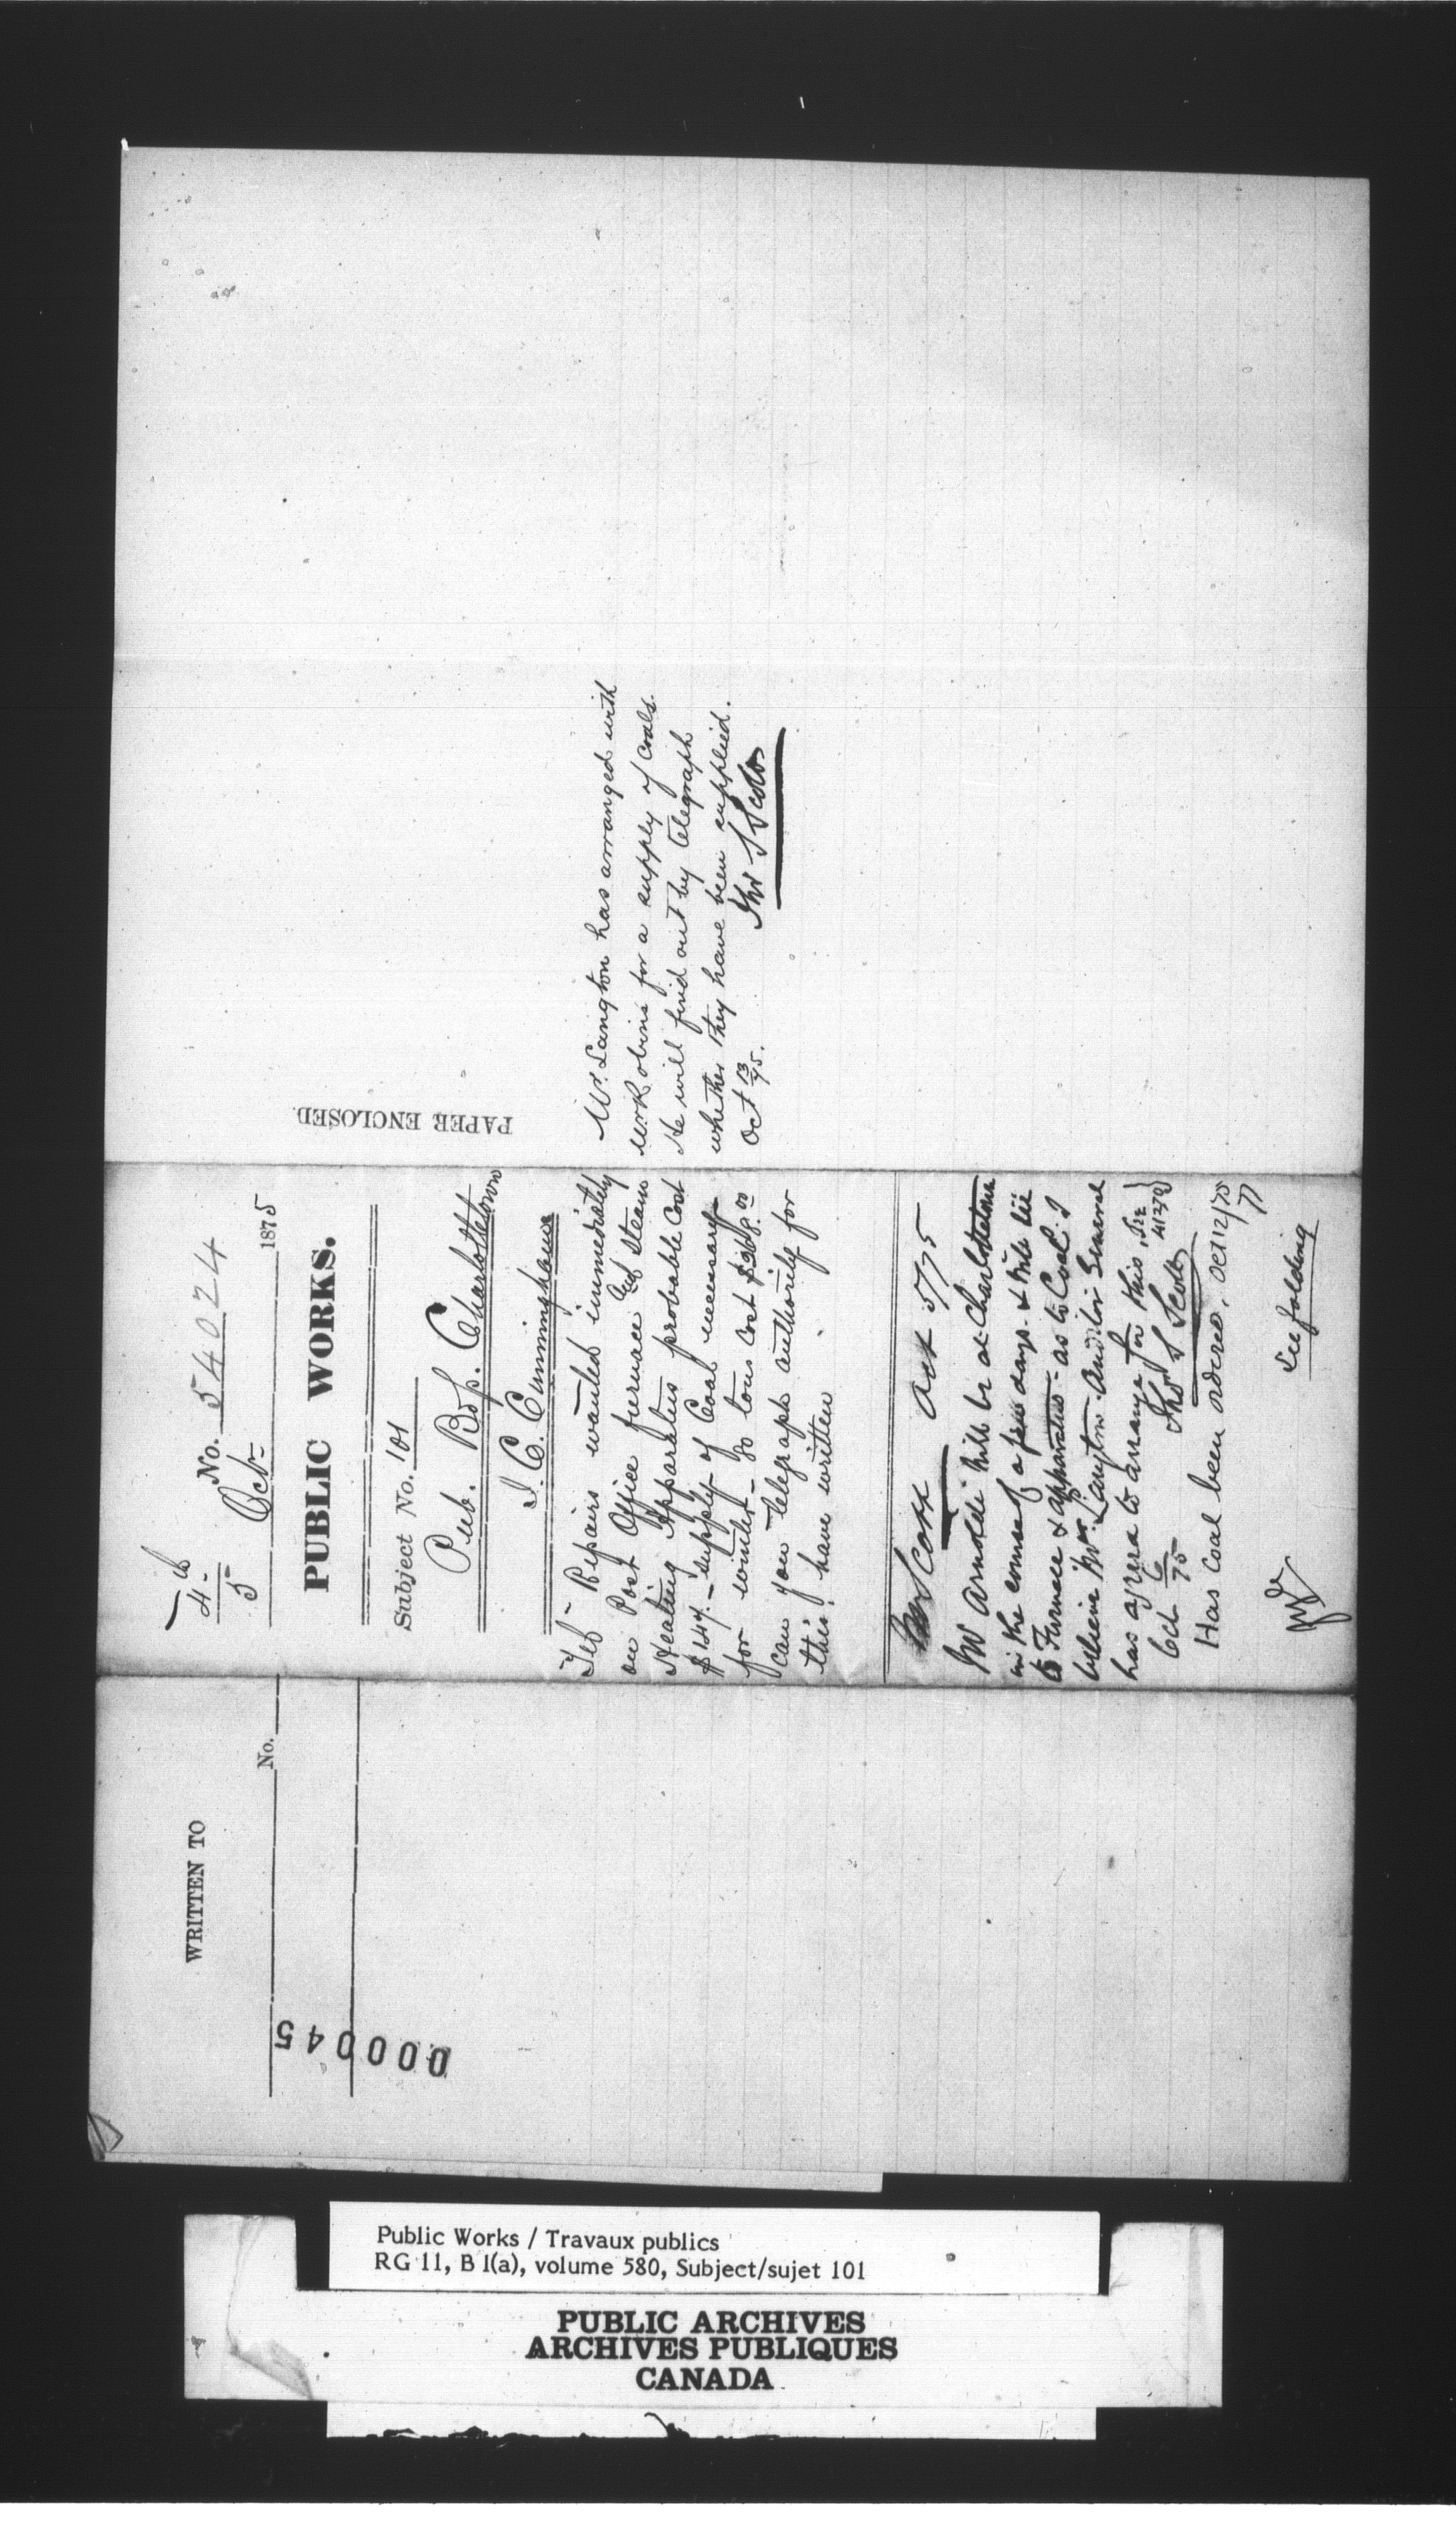 WRITTEN TO
No.
000045
4
5
No. 54024
Oct 1875
PUBLIC WORKS.
Subject No. 101
Pub. Bgs. Charlottetown
I. C. Cunningham
Tel- Repairs wanted immediately
on Post Office furnace and Steam
Heating Apparatus probable Cost
$144.- supply of Coal necessary
for winter - 80 tons Cost $368.00
Can you telegraph authority for
this. have written
Mr Scott Oct 5/75
Mr Arnoldi will be at Charlottetown
in the course of a few days & will see
to Furnace & apparatus - as to Coal I
believe Mr. Langton Auditor General
has agreed to arrange for this, See 41372
Oct 6 75 Thos S Scott
Has Coal been ordered, Oct 12/75
See folding
PAPER ENCLOSED.
Mr. Langton has arranged with
Mr Robins for a supply of Coals.
He will find out by telegraph
whether they have been supplied.
Oct 13 75. Thos S Scott
Public Works / Travaux publics
RG 11, B 1(a), volume 580, Subject/sujet 101
PUBLIC ARCHIVES
ARCHIVES PUBLIQUES
CANADA